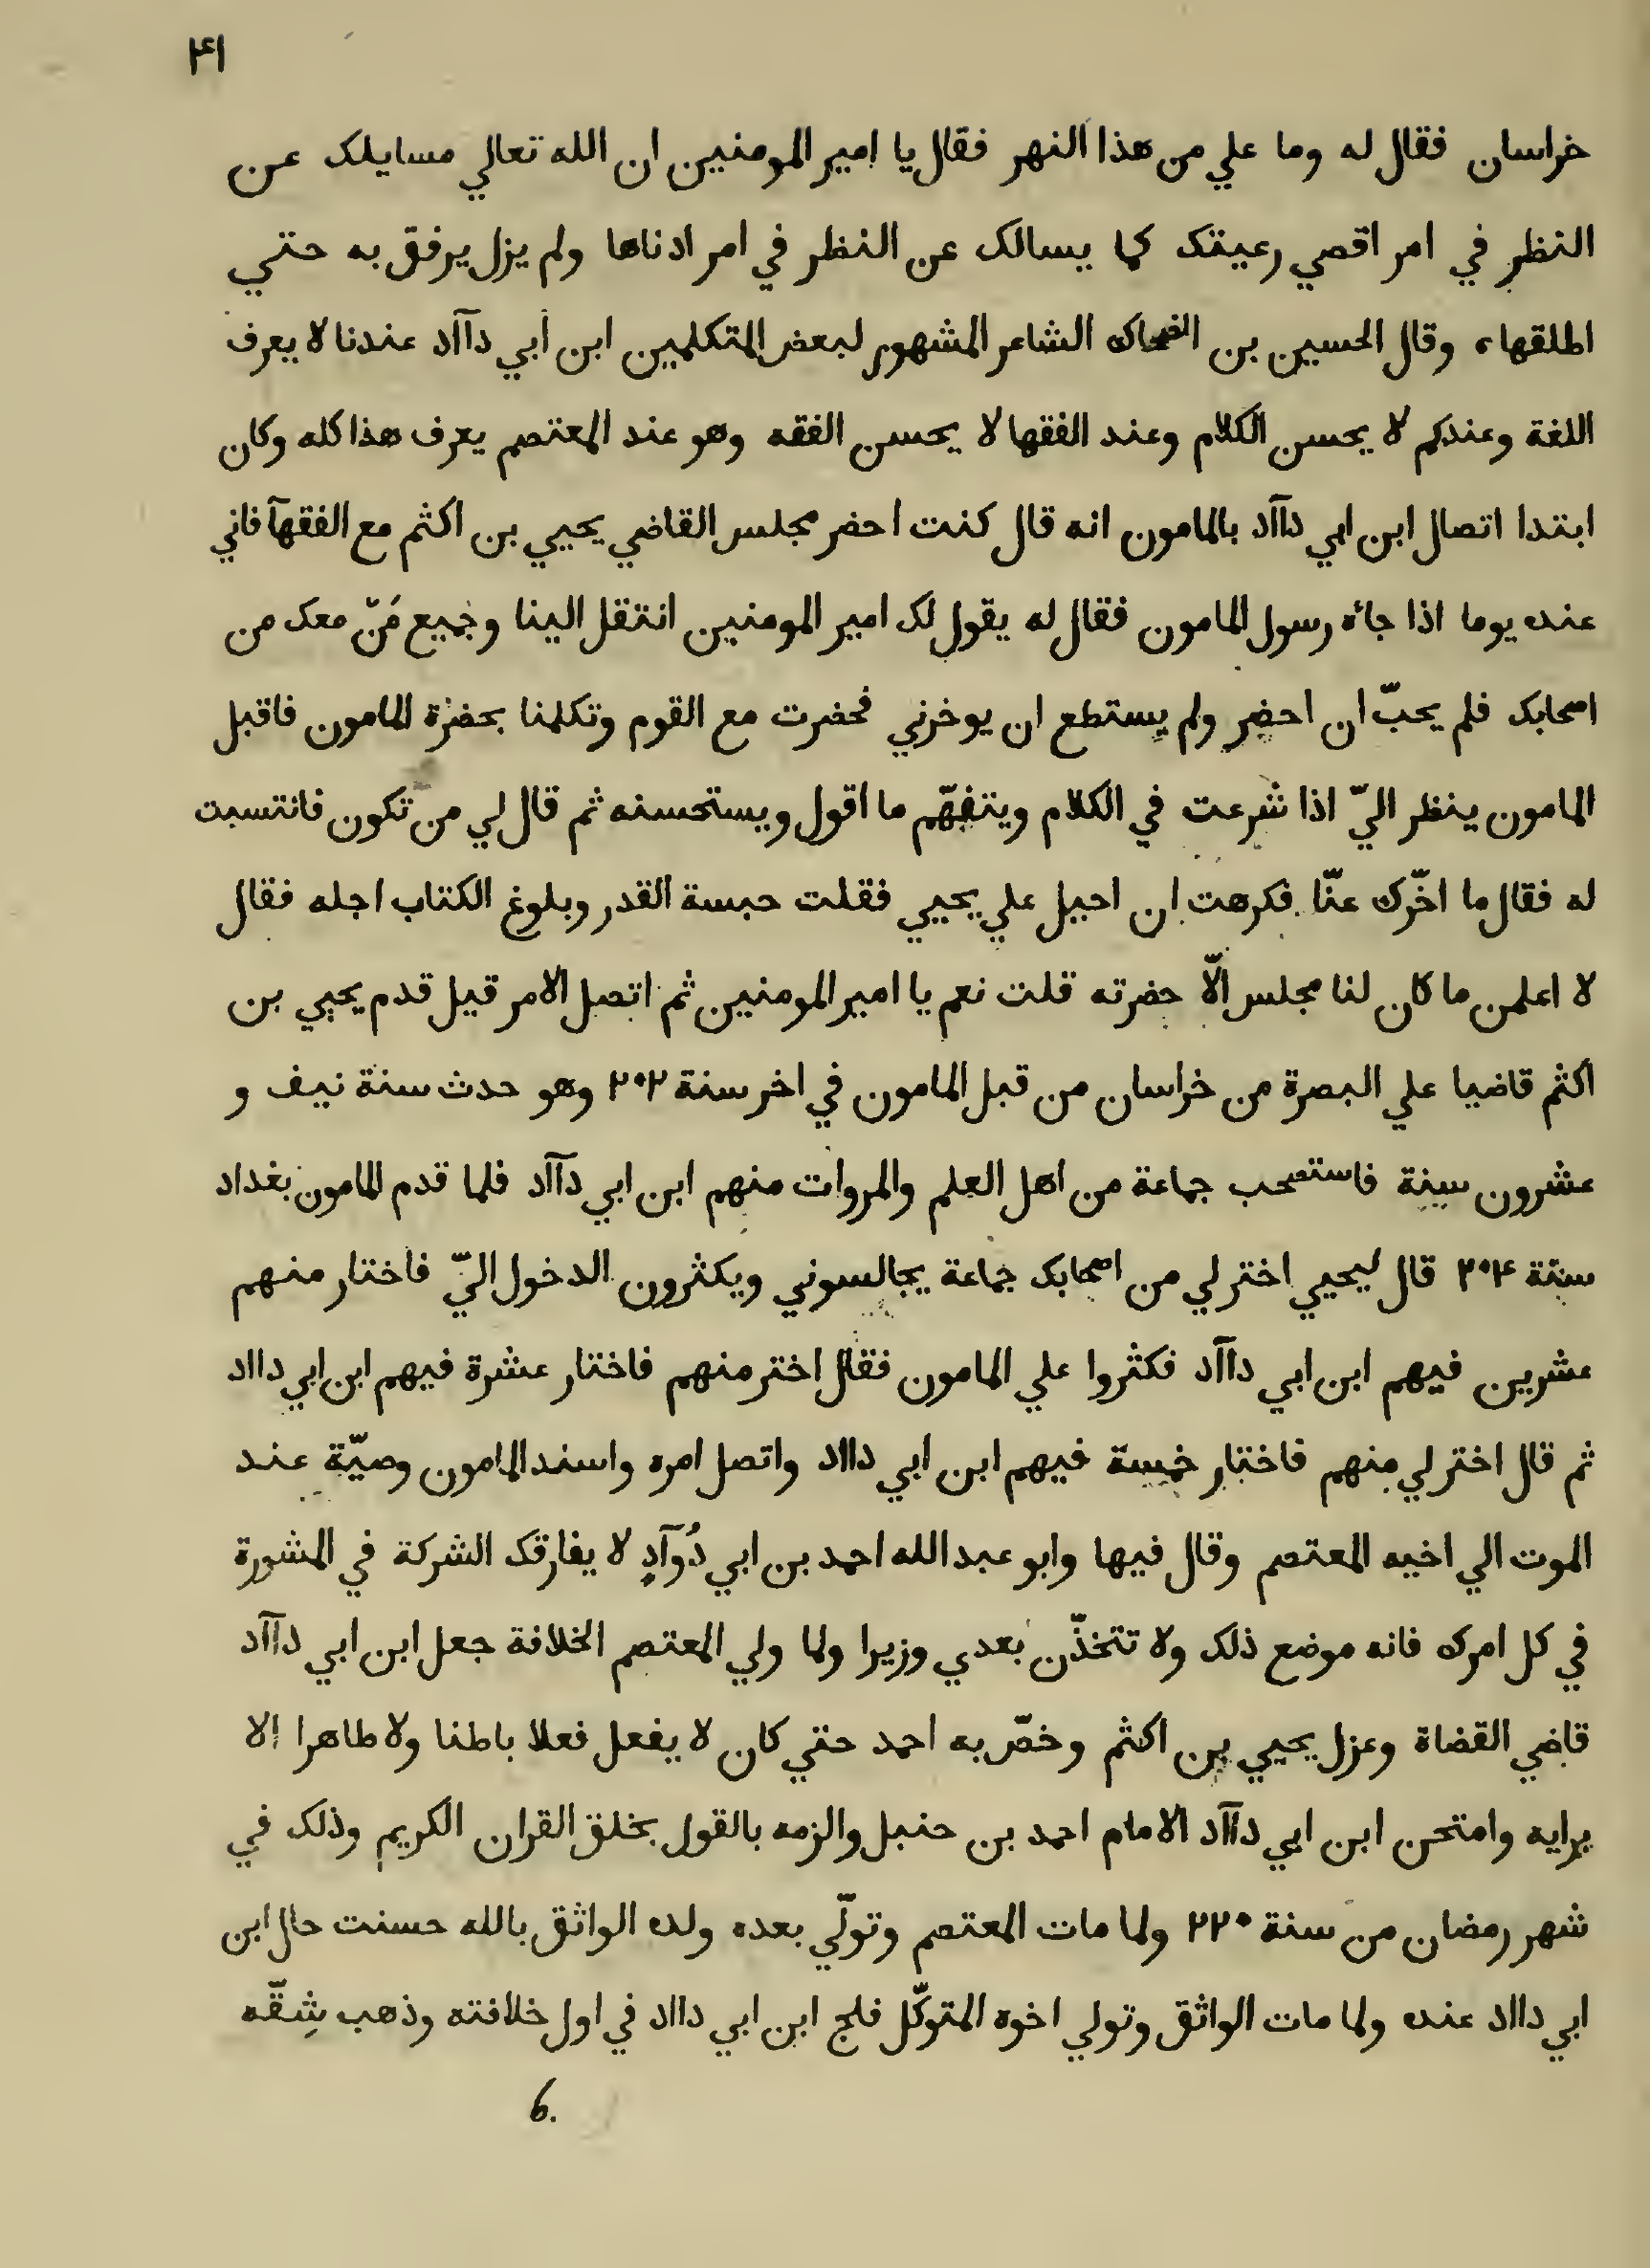 ۴۱
خراسان فقال له وما علي من هذا النهر فقال يا امير المومنين ان الله تعالي مسايلك عن
النظر في امر اقصي رعيتك كما يسالك عن النظر في امر ادناها ولم يزل يرفق به حتي
اطلقها، وقال الحسين بن الضحاك الشاعر المشهور لبعض المتكلمين ابن أبي دآاد عندنا لا يعرف
اللغة وعندكم لا يحسن الكلام وعند الفقها لا يحسن الفقه وهو عند المعتصم يعرف هذا كله وكان
ابتدا اتصال ابن ابي دآاد بالمامون انه قال كنت احضر مجلس القاضي يحيي بن اكثم مع الفقهآ فاني
عنده يوما اذا جأه رسول المامون فقال له يقول لك امير المومنين انتقل الينا وجميع مَنّ معك من
اصحابك فلم يحبّ ان احضر ولم يستطع ان يوخرني فحضرت مع القوم وتكلمنا بحضرة المامون فاقبل
المامون ينظر اليّ اذا شرعت في الكلام ويتفهّم ما اقول ويستحسنه ثم قال لي من تكون فانتسبت
له فقال ما اخّرك عنّا فكرهت ان احيل علي يحيي فقلت حبسة القدر وبلوغ الكتاب اجله فقال
لا اعلمن ما كان لنا مجلس الّا حضرته قلت نعم يا امير المومنين ثم اتصل الامر قيل قدم يحيي بن
اكثم قاضيا علي البصرة من خراسان من قبل المامون في اخر سنة ۲۰۲ وهو حدث سنة نيف و
عشرون سنة فاستصحب جماعة من اهل العلم والمروات منهم ابن ابي دآاد فلما قدم المامون بغداد
سنة ۲۰۴ قال ليحيي اختر لي من اصحابك جماعة يجالسوني ويكثرون الدخول اليّ فاختار منهم
عشرين فيهم ابن ابي دآاد فكثروا علي المامون فقال اختر منهم فاختار عشرة فيهم ابن ابي دااد
ثم قال اختر لي منهم فاختار خمسة فيهم ابن ابي دااد واتصل امره واسند المامون وصيّة عند
الموت الي اخيه المعتصم وقال فيها وابو عبد الله احمد بن ابي دُوآدٍ لا يفارقك الشركة في المشورة
في كل امرك فانه موضع ذلك ولا تتخذّن بعدي وزيرا ولما ولي المعتصم الخلافة جعل ابن ابي دآاد
قاضي القضاة وعزل يحيي بن اكثم وخصّ به احمد حتي كان لا يفعل فعلا باطنا ولا طاهرا الا
برايه وامتحن ابن ابي دآاد الامام احمد بن حنبل والزمه بالقول بخلق القران الكريم وذلك في
شهر رمضان من سنة ۲۲۰ ولما مات المعتصم وتولّي بعده ولده الواثق بالله حسنت حال ابن
ابي دااد عنده ولما مات الواثق وتولي اخوه المتوكّل فلج ابن ابي دااد في اول خلافته وذهب شِقّه
6.